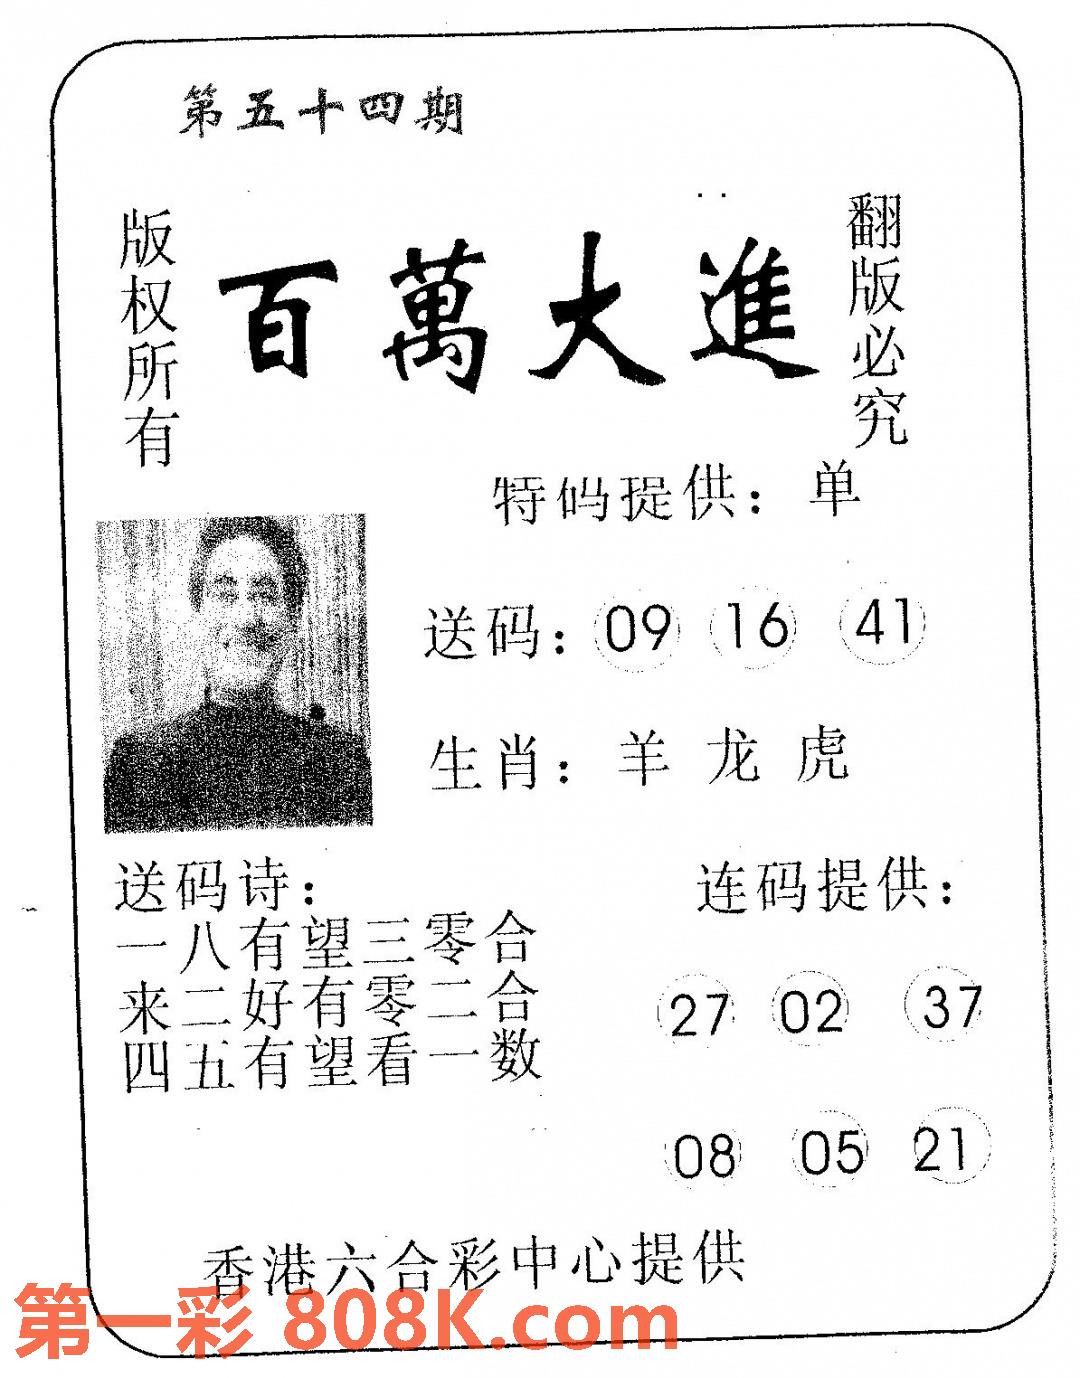 第五十四期
版权所有
百萬大進
翻版必究
特码提供：单
送码：09 16 41
生肖：羊龙虎
送码诗：
一八有望三零合
来二好有零二合
四五有望看一数
连码提供：
27 02 37
08 05 21
香港六合彩中心提供
第一彩 808K.com